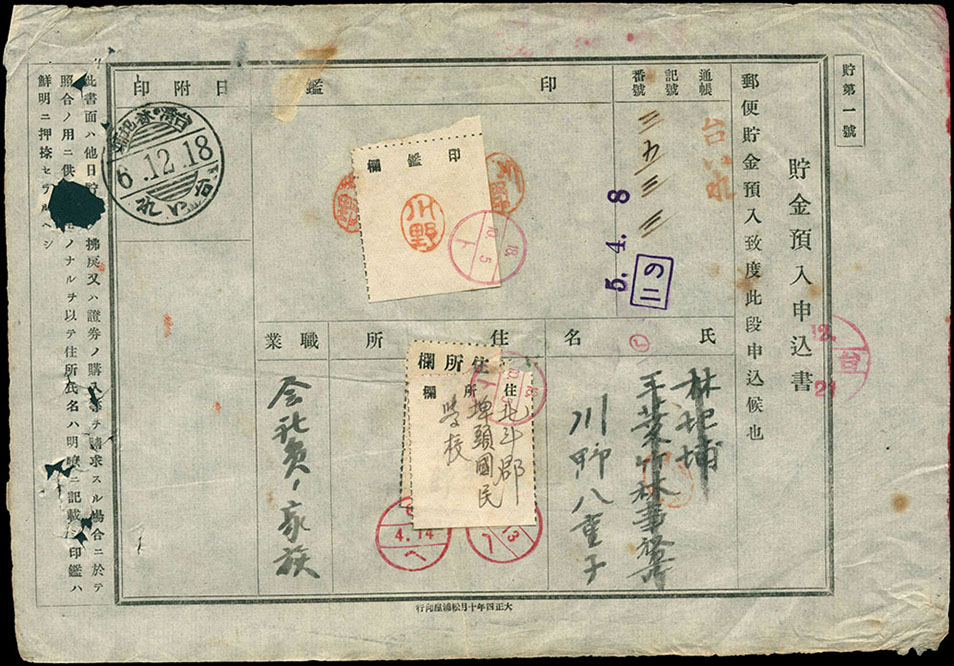 貯第一號
貯金預入申込書
郵便貯金預入致度此段申込候也
通帳
記號
番號
台いれ
三五三三
5.4.8
二の
印鑑
印鑑欄
川野
川野
18
10
5
ト
日附印
台湾・林圯埔
6.12.18
台いれ
氏名
林圯埔
川野八重子
住所
住所欄
住所欄
北斗郡
埤頭國民
學校
職業
会社員ノ家族
12.
台
21
4.14
へ
13
此書面ハ他日貯 拂戻又ハ證券ノ購入 ヲ請求スル場合ニ於テ
照合ノ用ニ供 ノナルヲ以テ住所氏名ハ明瞭ニ記載シ印鑑ハ
鮮明ニ押捺セラルヘシ
大正四年十月松浦屋印行